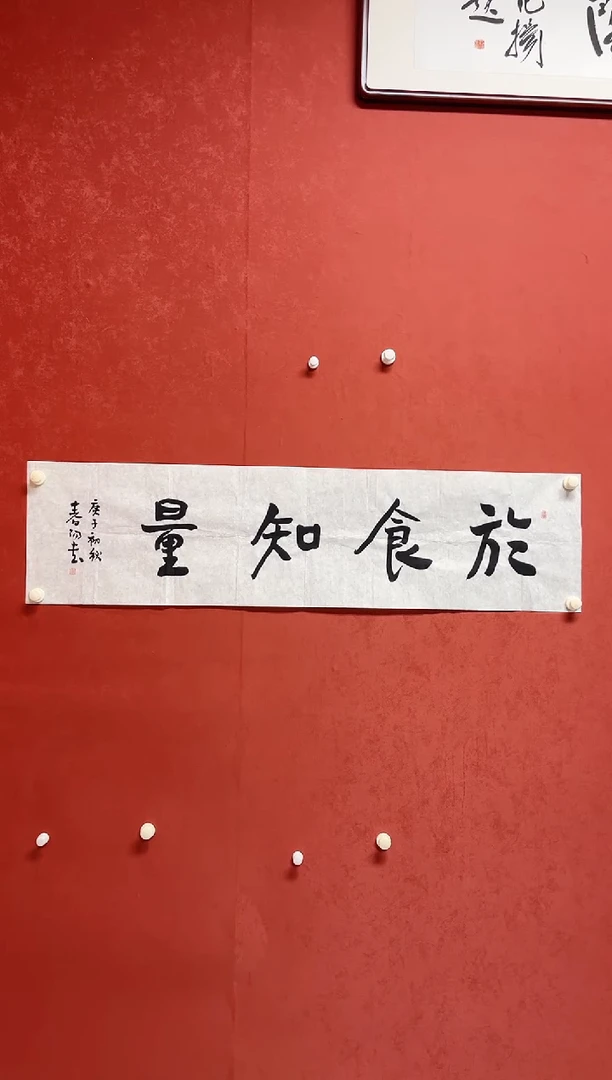 於食知量
庚子初秋
春阳书